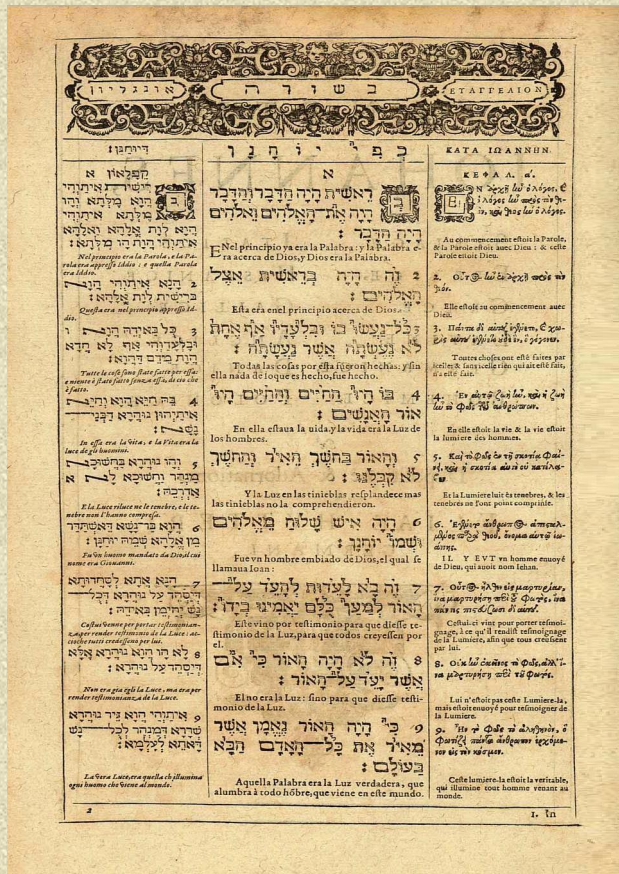 אונגליון
בשורה
ΕΥΑΓΓΕΛΙΟΝ
דיוחנן:
קפלאון א
Nel principio era la Parola, e la Pa-
rola era appresso Iddio: e quella Parola
era Iddio.
2 הנא איתוהי הוא
ברישית לות אלהא:
Questa era nel principio appresso Id-
dio.
3 כל באידה הוא ו
ובלעדוהי אף לא חדא
הות מדם דהוא:
Tutte le cose sono state fatte per essa:
e niente è stato fatto senza essa, di cio che
è fatto.
4 בה חיא הוא וחיא
איתיהון נוהרא דבני
נשא:
In essa era la vita, e la Vita era la
luce de gli huomini.
5 והו נוהרא בחשוכא
מנהר וחשוכא לא
אדרכה:
E la Luce riluce ne le tenebre, e le te-
nebre non l'hanno compresa.
6 הוא בר נשא דאשתדר
מן אלהא שמה יוחנן:
Fu vn huomo mandato da Dio, il cui
nome era Giouanni.
7 הנא אתא לסהדותא
דיסהד על נוהרא דכל
נש יהימן באידה:
Costui venne per portar testimonian-
za, per render testimonio de la Luce: ac-
cioche tutti credessino per lui.
8 לא הו הוא נוהרא אלא
דיסהד על נוהרא:
Non era gia egli la Luce, ma era per
render testimonianza de la Luce.
9 איתוהי הוא גיר נוהרא
שררא דמנהר לכל נש
דאתא לעלמא:
La vera Luce, era quella ch'illumina
ogni huomo che viene al mondo.
2
כפי יוחנן
א
בראשית היה הדבר והדבר
היה את האלהים ואלהים
היה הדבר:
Enel principio ya era la Palabra: y la Palabra e-
ra acerca de Dios, y Dios era la Palabra.
2 זה היה בראשית אצל
האלהים:
Esta era enel principio acerca de Dios.
3 כל נעשו בו ובלעדיו אף אחת
לא נעשתה אשר נעשתה:
Todas las cosas por esta fueron hechas: y sin
ella nada de loque es hecho, fue hecho.
4 בו היו החיים והחיים היו
אור האנשים:
En ella estaua la uida, y la vida era la Luz de
los hombres.
5 והאור בחשך האיר והחשך
לא קבלנו:
Y la Luz en las tinieblas resplandece mas
las tinieblas no la comprehendieron.
6 היה איש שלוח מאלהים
ושמו יוחנן:
Fue vn hombre embiado de Dios, el qual se
llamaua Ioan:
7 זה בא לעדות להעד על
האור למען כלם יאמינו בידו:
Este vino por testimonio para que diesse te-
stimonio de la Luz, para que todos creyessen por
el.
8 זה לא היה האור כי אם
אשר יעד על האור:
El no era la Luz: sino para que diesse testi-
monio de la Luz.
9 כי היה האור נאמן אשר
מאיר את כל האדם הבא
בעולם:
Aquella Palabra era la Luz verdadera, que
alumbra à todo hōbre, que viene en este mundo.
ΚΑΤΑ ΙΩΑΝΝΗΝ.
ΚΕΦΑΛ. α.
ΕΝ ἀρχῇ ἦν ὁ λόγος, καὶ
ὁ λόγος ἦν πρὸς τὸν θε-
όν, καὶ θεὸς ἦν ὁ λόγος.
Au commencement estoit la Parole,
& la Parole estoit auec Dieu: & ceste
Parole estoit Dieu.
2. Οὗτος ἦν ἐν ἀρχῇ πρὸς τὸν
θεόν.
Elle estoit au commencement auec
Dieu.
3. Πάντα δι' αὐτοῦ ἐγένετο, καὶ χω-
ρὶς αὐτοῦ ἐγένετο οὐδὲ ἕν, ὃ γέγονεν.
Toutes choses ont esté faites par
icelle: & sans icelle rien qui ait esté fait,
n'a esté fait.
4. Ἐν αὐτῷ ζωὴ ἦν, καὶ ἡ ζωὴ
ἦν τὸ Φῶς τῶν ἀνθρώπων.
En elle estoit la vie & la vie estoit
la lumiere des hommes.
5. Καὶ τὸ Φῶς ἐν τῇ σκοτίᾳ Φαί-
νει, καὶ ἡ σκοτία αὐτὸ οὐ κατέλα-
βεν.
Et la Lumiere luit és tenebres, & les
tenebres ne l'ont point comprinse.
6. Ἐγένετο ἄνθρωπος ἀπεσταλ-
μένος παρὰ θεοῦ, ὄνομα αὐτῷ ἰω-
άννης.
IL Y EVT vn homme enuoyé
de Dieu, qui auoit nom Iehan.
7. Οὗτος ἦλθεν εἰς μαρτυρίαν,
ἵνα μαρτυρήσῃ περὶ τοῦ Φωτὸς, ἵνα
πάντες πιστεύσωσι δι' αὐτοῦ.
Cestui-ci vint pour porter tesmoi-
gnage, à ce qu'il rendist tesmoignage
de la Lumiere, afin que tous creussent
par lui.
8. Οὐκ ἦν ἐκεῖνος τὸ Φῶς, ἀλλ' ἵ-
να μαρτυρήσῃ περὶ τοῦ Φωτός.
Lui n'estoit pas ceste Lumiere-la,
mais estoit enuoyé pour tesmoigner de
la Lumiere.
9. Ἦν τὸ Φῶς τὸ ἀληθινὸν, ὃ
Φωτίζει πάντα ἄνθρωπον ἐρχόμε-
νον εἰς τὸν κόσμον.
Ceste lumiere-la estoit la veritable,
qui illumine tout homme venant au
monde.
1. In